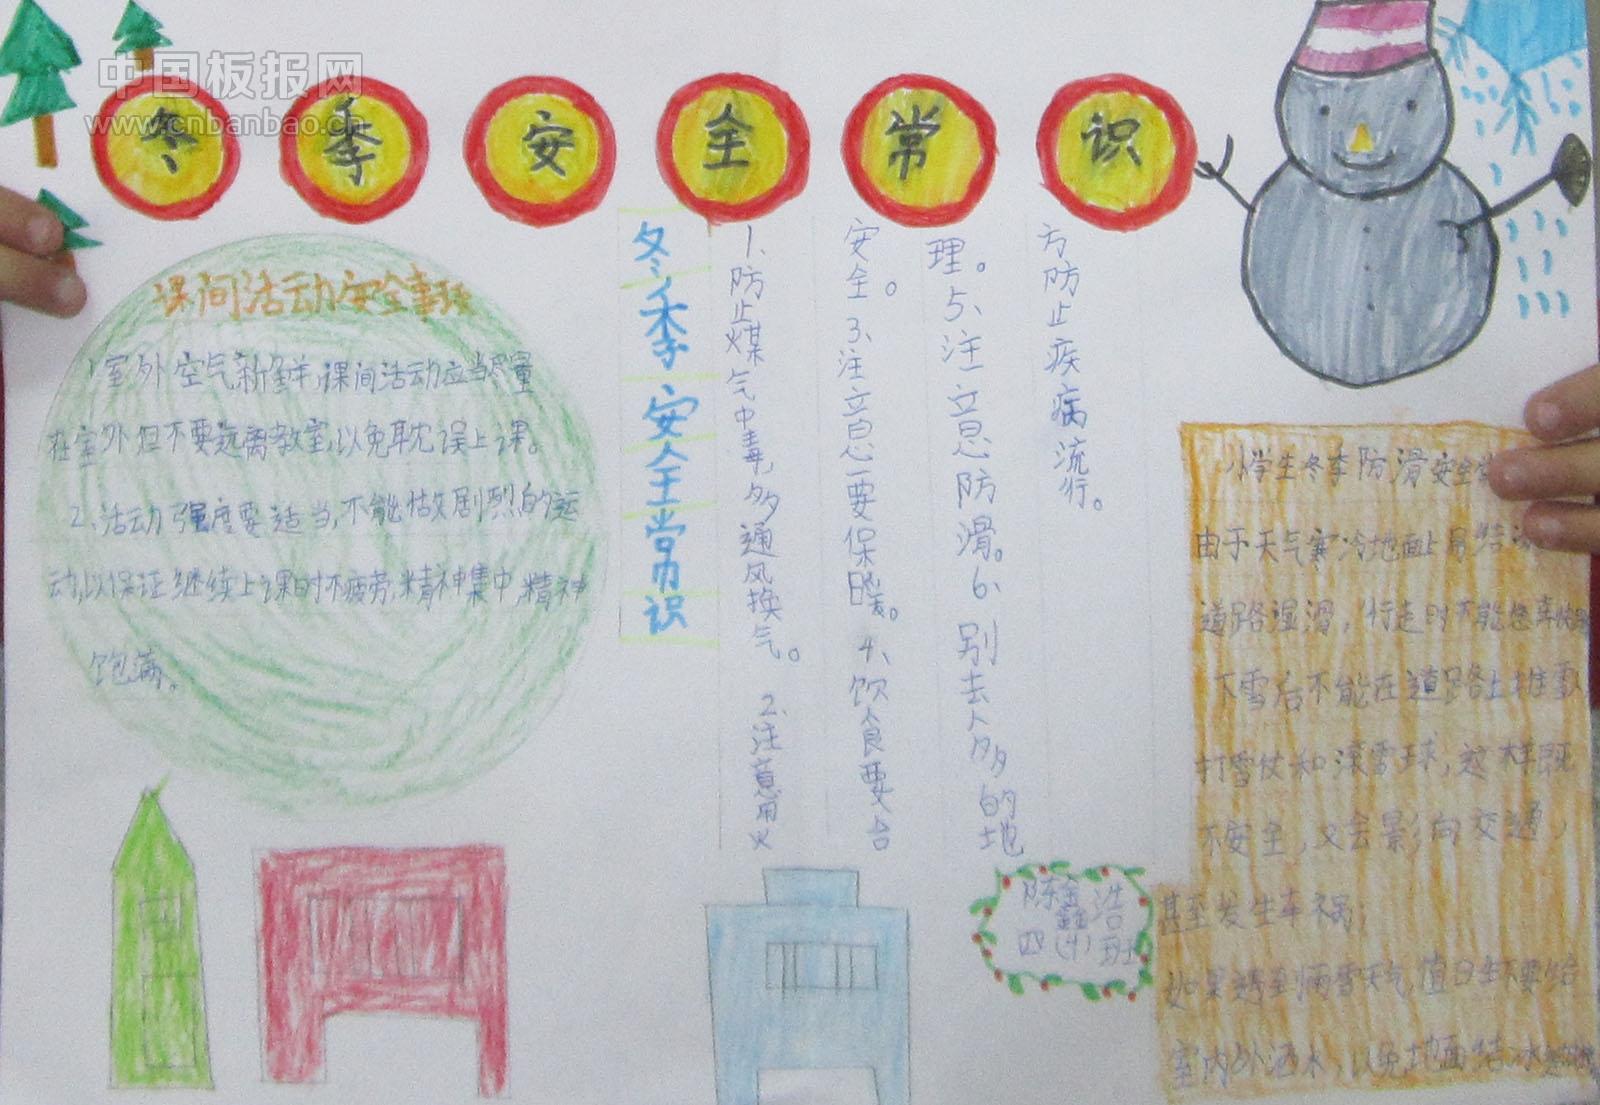 中国板报网
www.cnbanbao.cn
冬季安全常识
课间活动安全事项
1室外空气新鲜,课间活动应当尽量
在室外但不要远离教室,以免耽误上课。
2、活动强度要适当,不能做剧烈的运
动,以保证继续上课时不疲劳,精神集中,精神
饱满。
冬季安全常识
1、防止煤气中毒,多通风换气。 2、注意用火
安全。3、注意要保暖。4、饮食要合
理。5、注意防滑。6、别去人多的地
方防止疾病流行。
小学生冬季防滑安全常
由于天气寒冷地面上易结冰
道路湿滑,行走时不能
下雪后不能在道路上堆雪
打雪仗和滚雪球,这样既
不安全,又会影向交通,
甚至发生车祸;
如果遇到雨雪天气,值日生不要给
室内外洒水,以免地面结冰
陈鑫浩
四(4)班